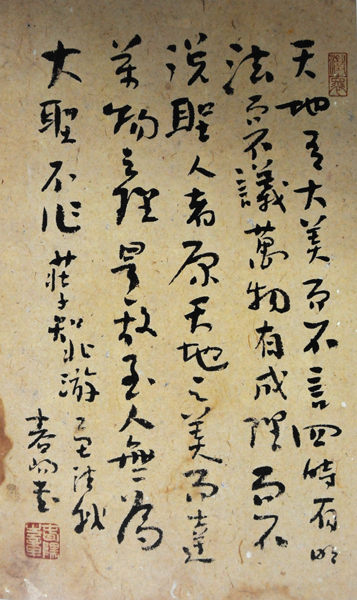 天地有大美而不言四時有明
法而不議萬物有成理而不
说聖人者原天地之美而達
萬物之理是故至人無為
大聖不作莊子知北游
春書